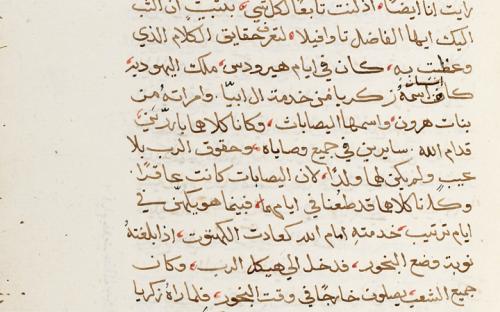 رايت انا ايضًا، اذ كنت تابعًا لكل شي، بتثبيت ان اكتب
اليك ايها الفاضل تاوافيلا، لتعرف حقايق الكلام الذي
وعظت به، كان في ايام هيرودس، ملك اليهودية،
كاهن اسمهُ زكريا من خدمة ال ابيّا وامراتهُ من
بنات هرون، واسمها اليصابات، وكانا كلاهما بارّين،
قدام الله سايرين في جميع وصاياه، وحقوق الرب بلا
عيب ولم يكن لهما ولدًا، لان اليصابات كانت عاقرًا
وكانا كلاهما قد طعنا في ايامهما، فبينما هو يكهن في
ايام ترتيب، خدمتهِ امام الله كعادت الكهنوت، اذ بلغتهُ
نوبة وضع البخور، فدخل الي هيكل الرب، وكان
جميع الشعب يصلون خارجًا في وقت البخور، فلما راهُ زكريا